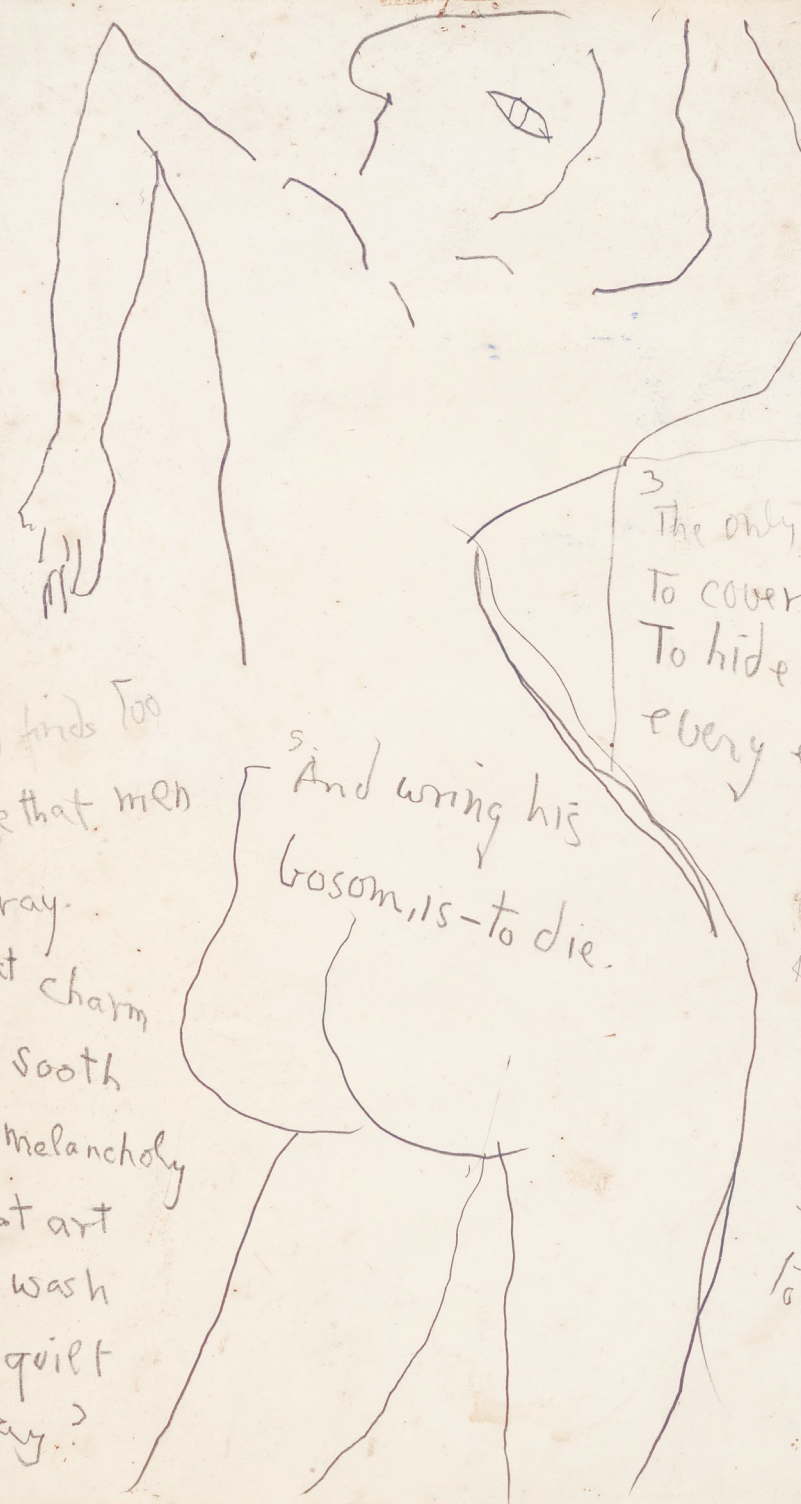 finds Too
e that men
ray.
t charm
sooth
melancholy
t art
wash
guilt
ay?
5.
And wring his
bosom, is – to die.
3
The only
To cover
To hide
every